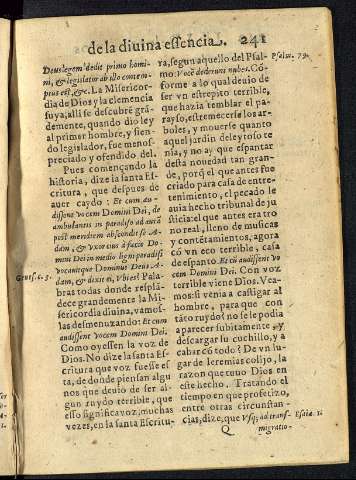 de la diuina essencia. 241
Deus legem dedit primo homi
ni, & legislator ab illo contem-
ptus est, &c. La Misericor
dia de Dios y la clemencia
suya, alli se descubre grã-
demente, quando dio ley
al primer hombre, y sien-
do legislador, fue menos-
preciado y ofendido del.
Pues començando la
historia, dize la santa Es-
critura, que despues de
auer caydo: Et cum au-
dissent vocem Domini Dei, de
ambulantis in paradiso ad aurã
post meridiem abscondit se A-
dam, & vxor eius à facie Do-
mini Dei in medio ligni paradisi
vocauitque Dominus Deus A-
Genes. c. 3.
dam, & dixit ei, Vbi es? Pala-
bras todas donde resplã-
dece grandemente la Mi-
sericordia diuina, vamos-
las desmenuzando: Et cum
audissent vocem Domini Dei.
Como oyessen la voz de
Dios. No dize la santa Es-
critura que voz fuesse es-
ta, de donde piensan algu
nos que deuio de ser al-
gun ruydo terrible, que
esso significa voz, muchas
vezes, en la santa Escritu-
ra, segun aquello del Psal-
Psalm. 79.
mo: Vocẽ dederunt nubes. Cõ-
forme a lo qual deuio de
ser vn estrepito terrible,
que hazia temblar el pa-
rayso, estremecerse los ar-
boles, y mouerse quanto
aquel jardin deleytoso te-
nia, y no ay que espantar
desta nouedad tan gran-
de, porq̃ el que antes fue
criado para casa de entre-
tenimiento, el pecado le
auia hecho tribunal de ju
sticia: el que antes era tro
no real, lleno de musicas
y contẽtamientos, agora
có vn eco terrible, casa
de espanto. Et cũ audissent vo
cem Domini Dei. Con voz
terrible viene Dios. Vea-
mos: si venia a castigar al
hombre, para que con
tãto ruydo? no se le podia
aparecer subitamente, y
descargar su cuchillo, y a
cabar có todo? De vn lu-
gar de Ieremias colijo, la
razon que tuuo Dios en
este hecho. Tratando el
tiempo en que profetizo,
entre otras circunstan-
cias, dize, que Vsq; ad trans-
Q
migratio-